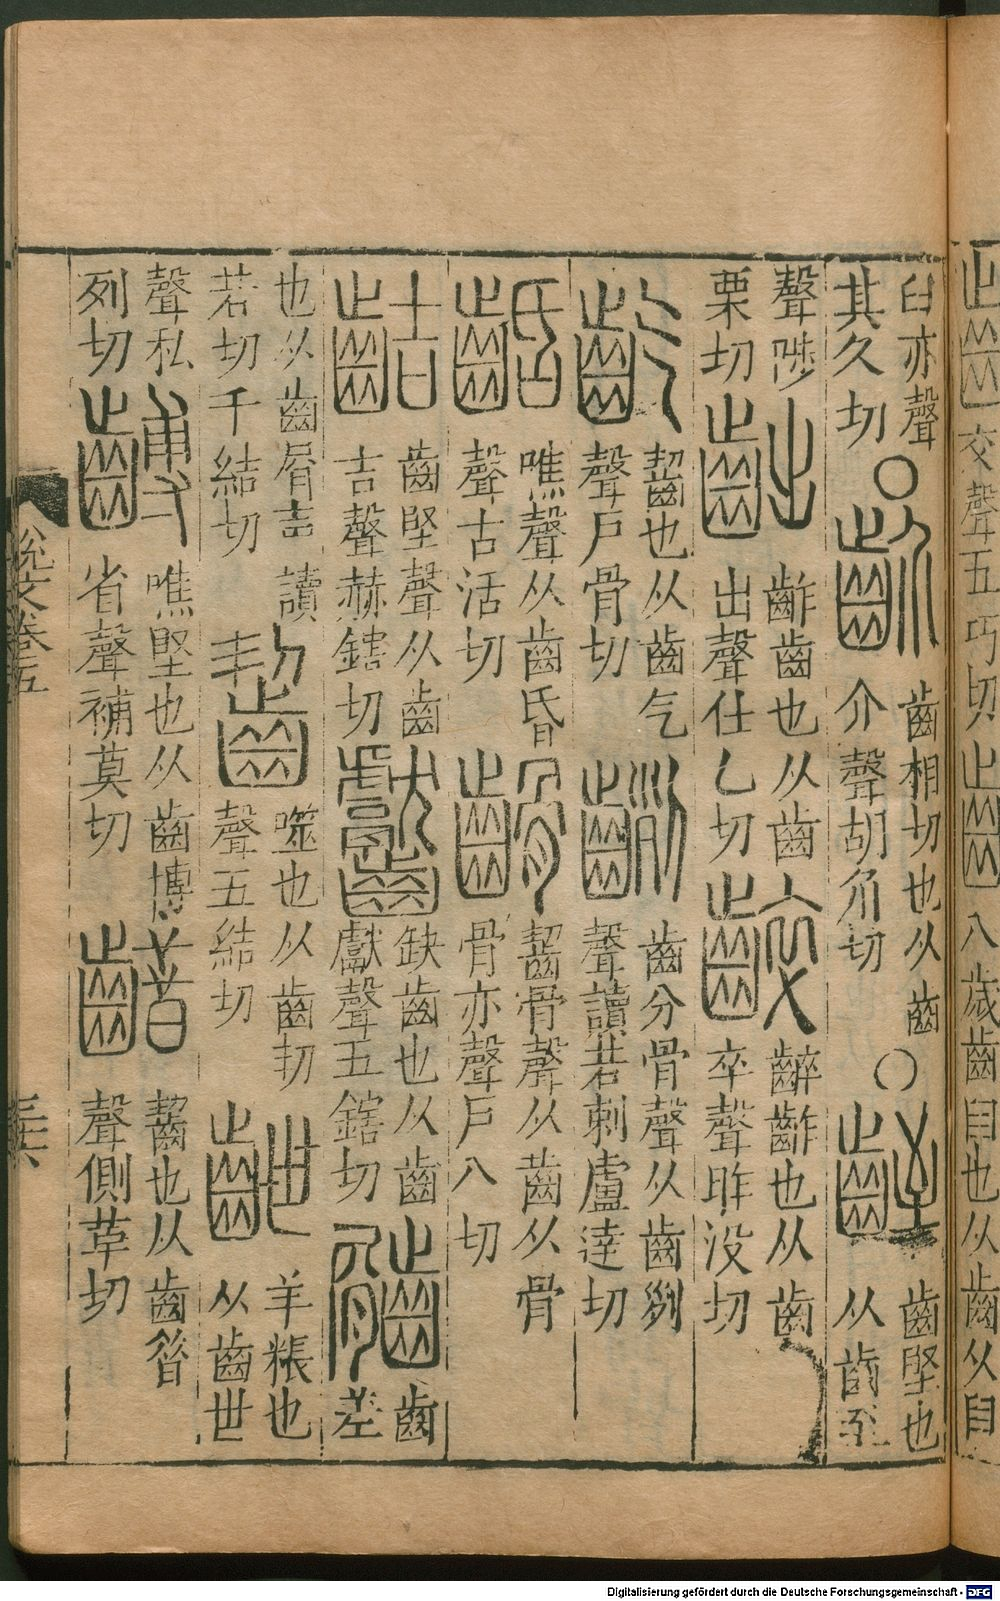 齩交聲五巧切齨八歲齒臼也从齒从臼
臼亦聲其久切○齘齒相切也从齒介聲胡介切○𪗻齒堅也从齒至
聲陟栗切齣齚齒也从齒出聲仕乙切䶝齚也从齒卒聲昨没切
齕齧也从齒气聲戶骨切𪘺齒分骨聲从齒𠛱聲讀若剌盧達切
噍聲从齒昏聲古活切𩩯齧骨聲从齒从骨骨亦聲戶八切
齒堅聲从齒吉聲赫鎋切缺齒也从齒獻聲五鎋切齒差
也从齒屑吉讀若切千結切齧噬也从齒㓞聲五結切齛羊粻也从齒世
聲私列切噍堅也从齒博省聲補莫切齰齧也从齒昔聲側革切
說文卷五
Digitalisierung gefördert durch die Deutsche Forschungsgemeinschaft - DFG